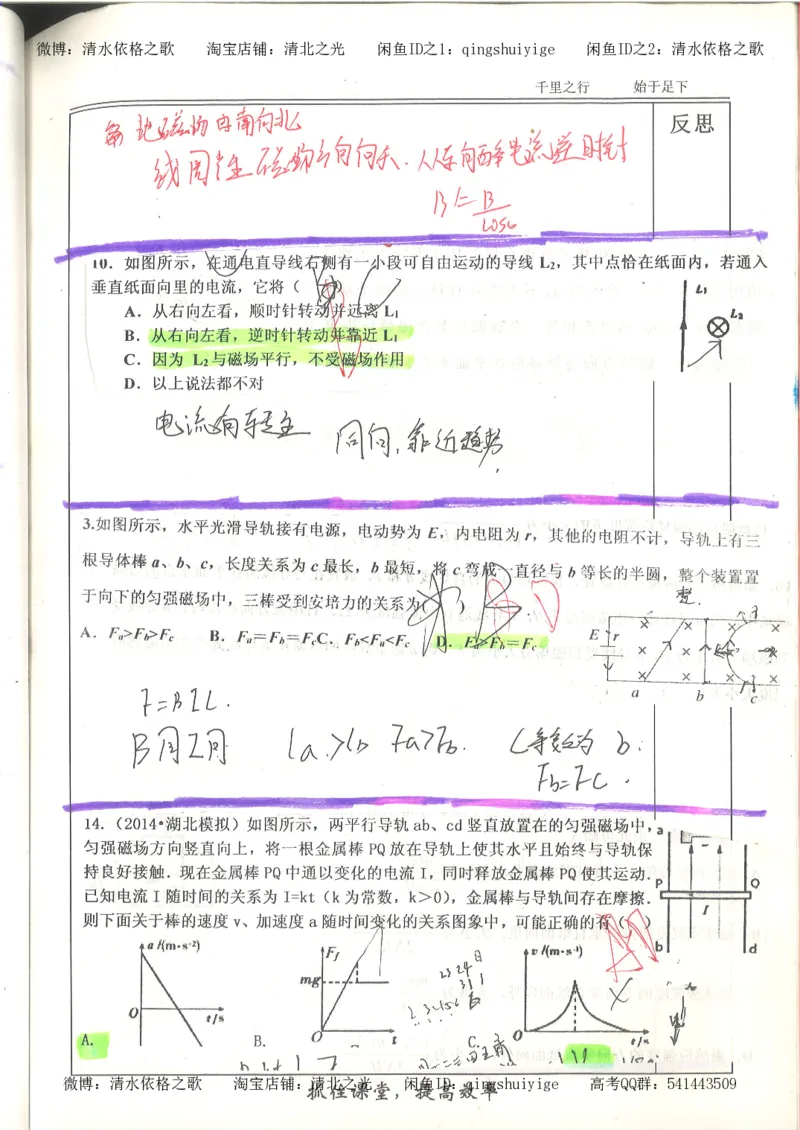 微博：清水依格之歌 淘宝店铺：清北之光 闲鱼ID之1：qingshuiyige 闲鱼ID之2：清水依格之歌
千里之行 始于足下
反思
地磁场由南向北
10．如图所示，在通电直导线右侧有一小段可自由运动的导线 L₂，其中点恰在纸面内，若通入
垂直纸面向里的电流，它将（ ）
L₁
L₂
A．从右向左看，顺时针转动并远离 L₁
B．从右向左看，逆时针转动并靠近 L₁
C．因为 L₂与磁场平行，不受磁场作用
D．以上说法都不对
同向，靠近趋势
3.如图所示，水平光滑导轨接有电源，电动势为 E，内电阻为 r，其他的电阻不计，导轨上有三
根导体棒 a、b、c，长度关系为 c 最长，b 最短，将 c 弯成一直径与 b 等长的半圆，整个装置置
于向下的匀强磁场中，三棒受到安培力的关系为（
A．Fa>Fb>Fc B．Fa＝Fb＝Fc C．Fb<Fa<Fc D．Fa>Fb＝Fc
E r
a b c
F=BIL.
B同I同 La>Lb Fa>Fb. C等效为 b.
Fb=Fc.
14．（2014•湖北模拟）如图所示，两平行导轨 ab、cd 竖直放置在的匀强磁场中，
匀强磁场方向竖直向上，将一根金属棒 PQ 放在导轨上使其水平且始终与导轨保
持良好接触．现在金属棒 PQ 中通以变化的电流 I，同时释放金属棒 PQ 使其运动．
已知电流 I 随时间的关系为 I=kt（k 为常数，k＞0），金属棒与导轨间存在摩擦．
则下面关于棒的速度 v、加速度 a 随时间变化的关系图象中，可能正确的有（ ）
a
P Q
I
b d
a/(m·s⁻²)
O t/s
A.
Ff
mg
O t
B.
v/(m·s⁻¹)
O t/s
C.
微博：清水依格之歌 淘宝店铺：清北之光 闲鱼ID：qingshuiyige 高考QQ群：541443509
抓住课堂，提高效率